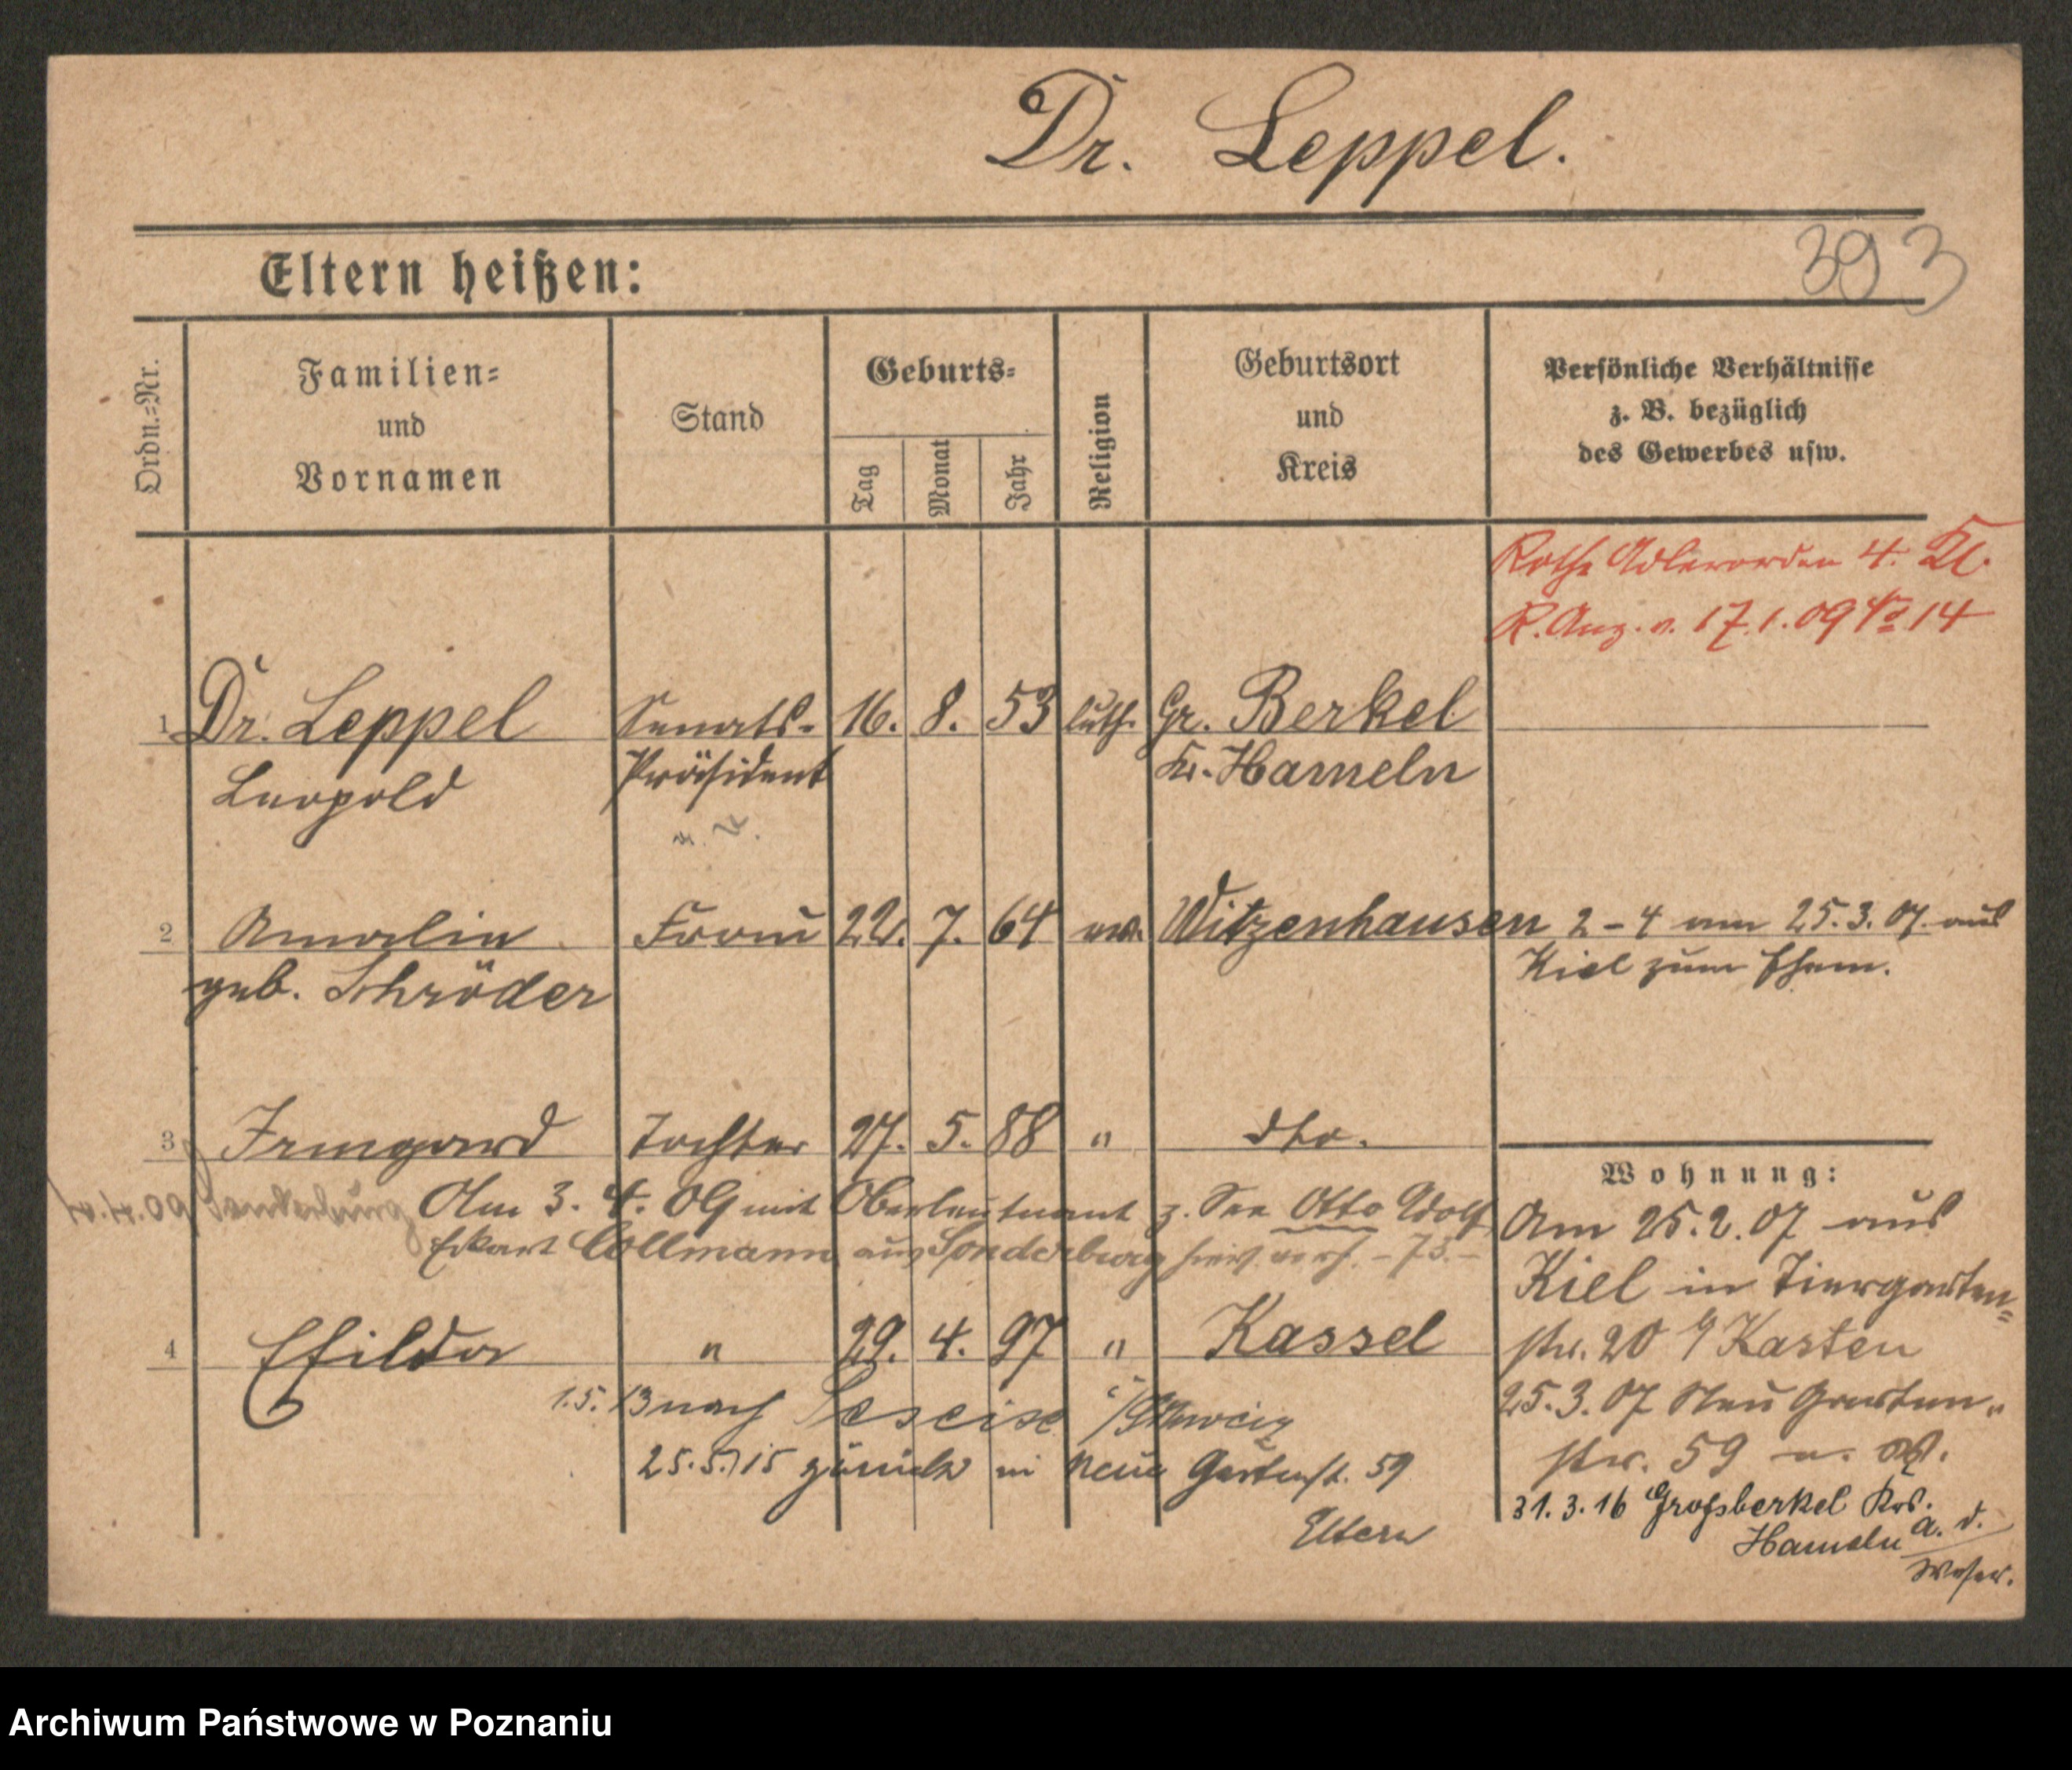 Dr. Leppel.
Eltern heißen:
393
Ordn.-Nr.
Familien-
und
Vornamen
Stand
Geburts-
Tag
Monat
Jahr
Religion
Geburtsort
und
Kreis
Persönliche Verhältnisse
z. B. bezüglich
des Gewerbes usw.
Rothe Adlerorden 4. Kl.
R. Anz. v. 17.1.09 No 14
1 Dr. Leppel Senats- 16. 8. 53 luth. Gr. Berkel
Leopold Präsident Kr. Hameln
2 Amalie Frau 22. 7. 64 ev. Witzenhausen 2-4 am 25.3.07. aus
geb. Schröder Kiel zum Ehem.
3 Irmgard Tochter 27. 5. 88 " dto.
Wohnung:
4.09 Sonderburg Am 3. 4. 09 mit Oberleutnant z. See Otto Adolf
Eckart Collmann aus Sonderburg hier verh.
Am 25.2.07 aus
Kiel in Tiergarten-
str. 20 b/ Kasten
4 Thilda " 29. 4. 97 " Kassel
1.5.13 nach
25.5.15 zurück in Neue Gartenst. 59
Eltern
25.3.07 Neu Garten-
str. 59 a.
31.3.16 Großberkel Krs.
Hameln a. d.
Weser.
Archiwum Państwowe w Poznaniu